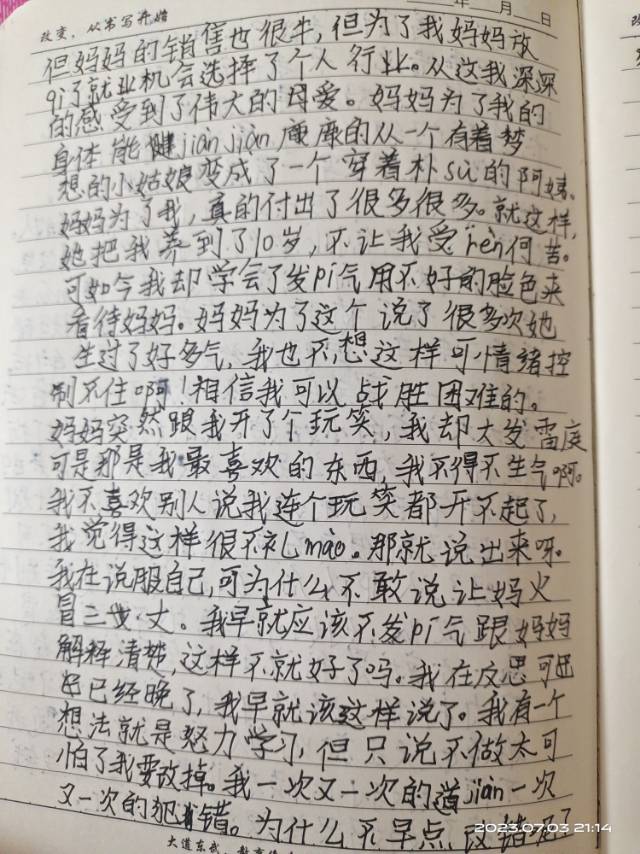 改变，从书写开始
年 月 日
但妈妈的销售也很牛，但为了我妈妈放
qi了就业机会选择了个人行业。从这我深深
的感受到了伟大的母爱。妈妈为了我的
身体能健jiàn jiàn康康的从一个有着梦
想的小姑娘变成了一个穿着朴sù的阿姨。
妈妈为了我，真的付出了很多很多。就这样，
她把我养到了10岁，不让我受rèn何苦。
可如今我却学会了发pí气用不好的脸色来
看待妈妈。妈妈为了这个说了很多次她
生过了好多气，我也不想这样可情绪控
制不住啊！相信我可以战胜困难的。
妈妈突然跟我开了个玩笑，我却大发雷庭
可是那是我最喜欢的东西，我不得不生气啊。
我不喜欢别人说我连个玩笑都开不起了，
我觉得这样很不礼mào。那就说出来呀。
我在说服自己，可为什么不敢说让妈火
冒三丈。我早就应该不发pí气跟妈妈
解释清楚，这样不就好了吗。我在反思可
已经晚了，我早就该这样说了。我有一个
想法就是努力学习，但只说不做太可
怕了我要改掉。我一次又一次的道jiàn一次
又一次的犯错。为什么不早点改错呢？
大道东武
2023.07.03 21:14